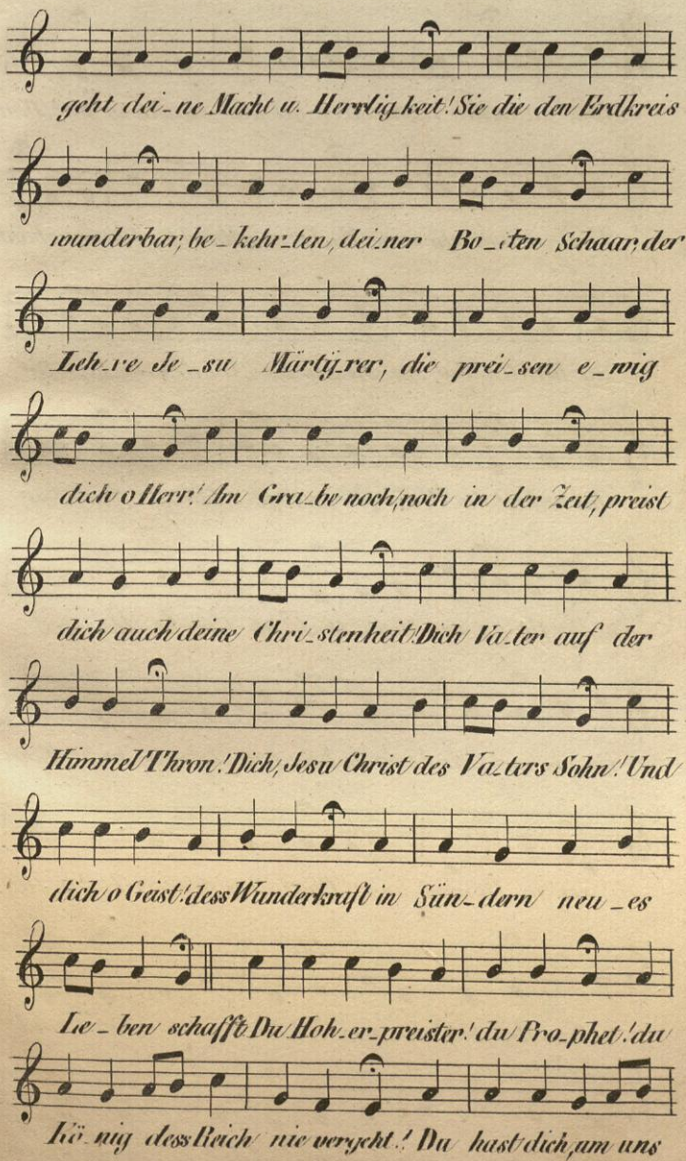 geht dei-ne Macht u. Herrlig-keit! Sie die den Erdkreis
wunderbar, be-kehr-ten, dei-ner Bo-ten Schaar, der
Leh-re Je-su Märtÿ-rer, die prei-sen e-wig
dich o Herr! Am Gra-be noch, noch in der Zeit, preist
dich auch deine Chri-stenheit! Dich Va-ter auf der
Himmel Thron! Dich, Jesu Christ des Va-ters Sohn! Und
dich o Geist! dess Wunderkraft in Sün-dern neu-es
Le-ben schafft Du Hoh-er-preister! du Pro-phet! du
Kö-nig dess Reich nie vergeht! Du hast dich, um uns